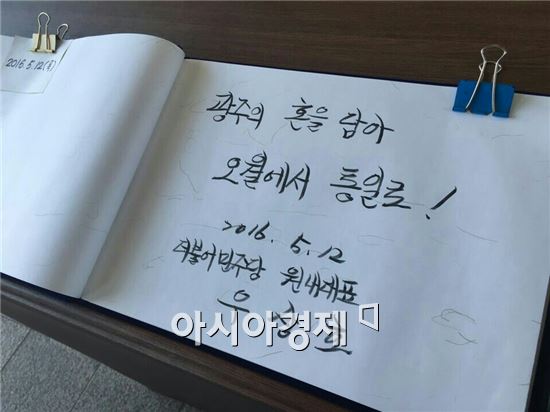 2016.5.12(목)
광주의 혼을 담아
오월에서 통일로!
2016. 5. 12
더불어민주당 원내대표
우상호
아시아경제